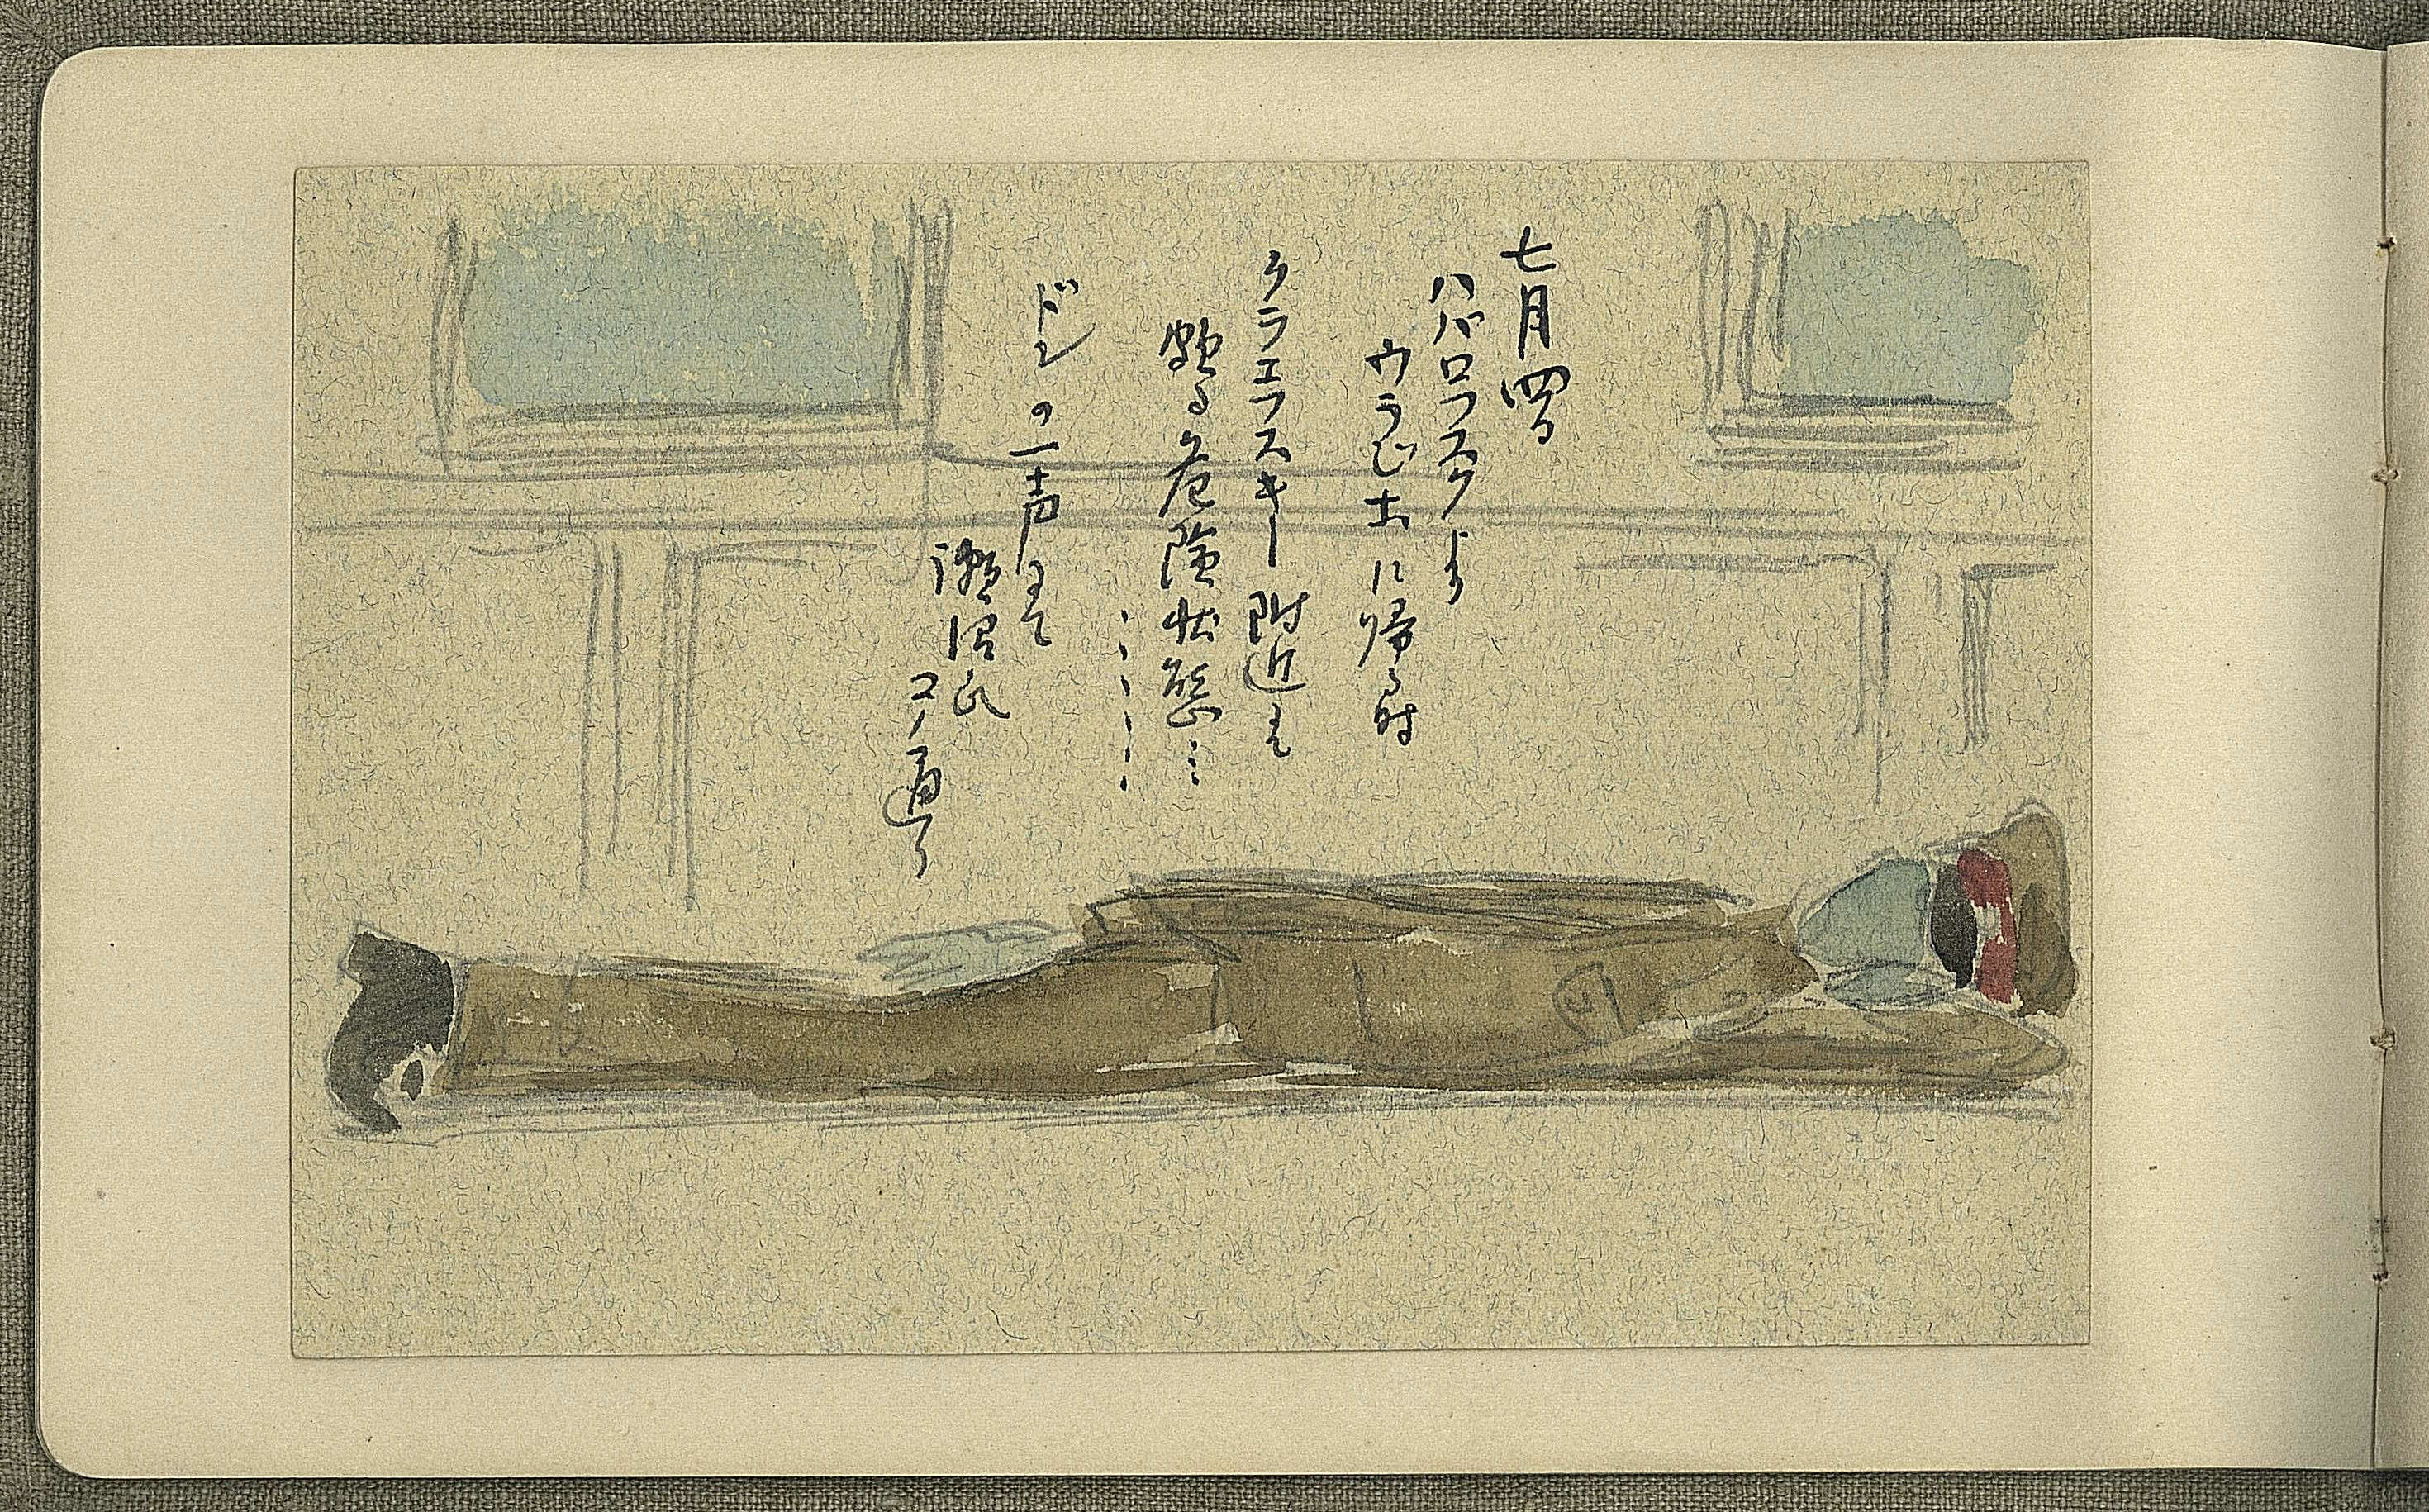 七月四日
ハバロフスクより
ウラじオに帰る時
クラエフスキー附近は
頗る危険状態……
……
ドンの一声にて
瀬沼氏
コノ通り